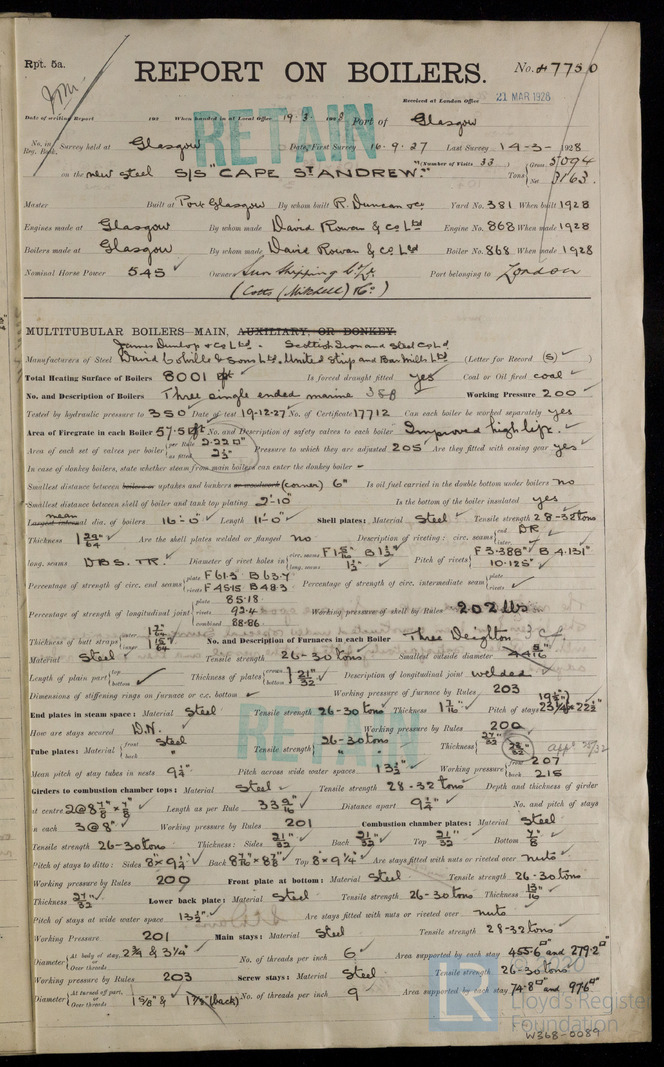 Rpt. 5a.
REPORT ON BOILERS.
No. 47750
Received at London Office 21 MAR 1928
Date of writing Report 192 When handed in at Local Office 19.3.1928 Port of Glasgow
RETAIN
No. in Reg. Book. Survey held at Glasgow Date, First Survey 16.9.27 Last Survey 14-3-1928
(Number of Visits 33) Gross 5094
on the new steel S/S "CAPE ST ANDREW." Tons Net 3163.
Master Built at Port Glasgow By whom built R. Duncan & Co Yard No. 381 When built 1928
Engines made at Glasgow By whom made David Rowan & Co Ltd Engine No. 868 When made 1928
Boilers made at Glasgow By whom made David Rowan & Co Ltd Boiler No. 868 When made 1928
Nominal Horse Power 545 Owners Sun Shipping Co Ld. Port belonging to London
(Cotts (Mitchell) & Co)
MULTITUBULAR BOILERS—MAIN, AUXILIARY, OR DONKEY.
James Dunlop & Co Ltd. Scottish Iron and Steel Co Ld
Manufacturers of Steel David Colville & Sons Ltd. United Strip and Bar Mills Ld (Letter for Record (S))
Total Heating Surface of Boilers 8001 Is forced draught fitted yes Coal or Oil fired coal
No. and Description of Boilers Three single ended marine Working Pressure 200
Tested by hydraulic pressure to 350 Date of test 19-12-27 No. of Certificate 17712 Can each boiler be worked separately yes
Area of Firegrate in each Boiler 57.5 No. and Description of safety valves to each boiler Improved high lift.
Area of each set of valves per boiler per Rule 2.22 as fitted 2½" Pressure to which they are adjusted 205 Are they fitted with easing gear yes
In case of donkey boilers, state whether steam from main boilers can enter the donkey boiler
Smallest distance between boilers or uptakes and bunkers or woodwork (corner) 6" Is oil fuel carried in the double bottom under boilers no
Smallest distance between shell of boiler and tank top plating 2'-10" Is the bottom of the boiler insulated yes
mean
Largest internal dia. of boilers 16'-0" Length 11'-0" Shell plates: Material Steel Tensile strength 28-32 tons
Thickness 1 29/64 Are the shell plates welded or flanged no Description of riveting: circ. seams end DR inter.
long. seams DBS. TR. Diameter of rivet holes in circ. seams F 1 5/16 B 1½" long. seams 1½" Pitch of rivets F 3.388" B 4.131" 10.125"
Percentage of strength of circ. end seams plate F 61.3 B 63.7 rivets F 45.15 B 48.3 Percentage of strength of circ. intermediate seam plate rivets
Percentage of strength of longitudinal joint plate 85.18 rivets 92.4 combined 88.86 Working pressure of shell by Rules 202 lbs
Thickness of butt straps outer inner No. and Description of Furnaces in each Boiler Three Deighton 3 C.F.
Material Steel Tensile strength 26-30 tons Smallest outside diameter 44 5/16"
Length of plain part top bottom Thickness of plates crown bottom 21/32" Description of longitudinal joint welded
Dimensions of stiffening rings on furnace or c.c. bottom Working pressure of furnace by Rules 203
End plates in steam space: Material Steel Tensile strength 26-30 tons Thickness 1 7/16" Pitch of stays
How are stays secured D.N. Working pressure by Rules 200
Tube plates: Material front Steel back " Tensile strength 26-30 tons " " Thickness 27/32
Mean pitch of stay tubes in nests 9¼" Pitch across wide water spaces 13½" Working pressure front 207 back 215
Girders to combustion chamber tops: Material Steel Tensile strength 28-32 tons Depth and thickness of girder
at centre 2@8⅞" × ⅞" Length as per Rule 33 9/16" Distance apart 9¼" No. and pitch of stays
in each 3@8" Working pressure by Rules 201 Combustion chamber plates: Material Steel
Tensile strength 26-30 tons Thickness: Sides 21/32" Back 21/32" Top 21/32" Bottom ⅞"
Pitch of stays to ditto: Sides 8" × 9¼" Back 8 7/16" × 8⅞" Top 8" × 9¼" Are stays fitted with nuts or riveted over nuts
Working pressure by Rules 200 Front plate at bottom: Material Steel Tensile strength 26-30 tons
Thickness 27/32 Lower back plate: Material Steel Tensile strength 26-30 tons Thickness 13/16"
Pitch of stays at wide water space 13½" Are stays fitted with nuts or riveted over nuts
Working Pressure 201 Main stays: Material Steel Tensile strength 28-32 tons
Diameter At body of stay, or Over threads 2¾ & 3¼" No. of threads per inch 6 Area supported by each stay 455.6 and 279.2
Working pressure by Rules 203 Screw stays: Material Steel Tensile strength 26-30 tons
Diameter At turned off part, or Over threads 1⅝" & 1⅞" (back) No. of threads per inch 9 Area supported by each stay 74.8 and 97.6
RETAIN
Lloyd's Register
Foundation
W368-0089